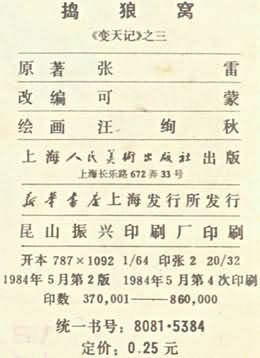 捣狼窝
《变天记》之三
原著张雷
改编可蒙
绘画汪绚秋
上海人民美術出版社出版
上海长乐路672弄33号
新华書店上海发行所发行
昆山振兴印刷厂印刷
开本787×1092 1/64 印张2 20/32
1984年5月第2版 1984年5月第4次印刷
印数 370,001——860,000
统一书号：8081·5384
定价：0.25元